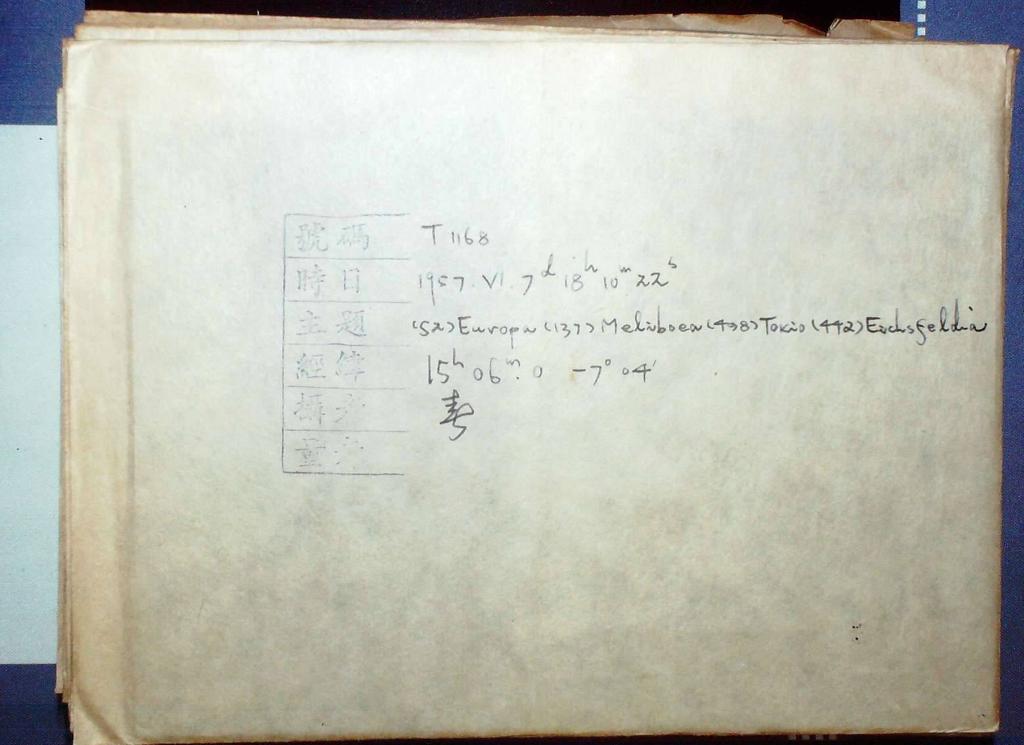 號碼 T 1168
時日 1957. VI. 7ᵈ 18ʰ 10ᵐ 22ˢ
主題 (52) Europa (137) Meliboea (498) Tokio (442) Eichsfeldia
經緯 15ʰ 06ᵐ.0 -7° 04'
攝者
量者